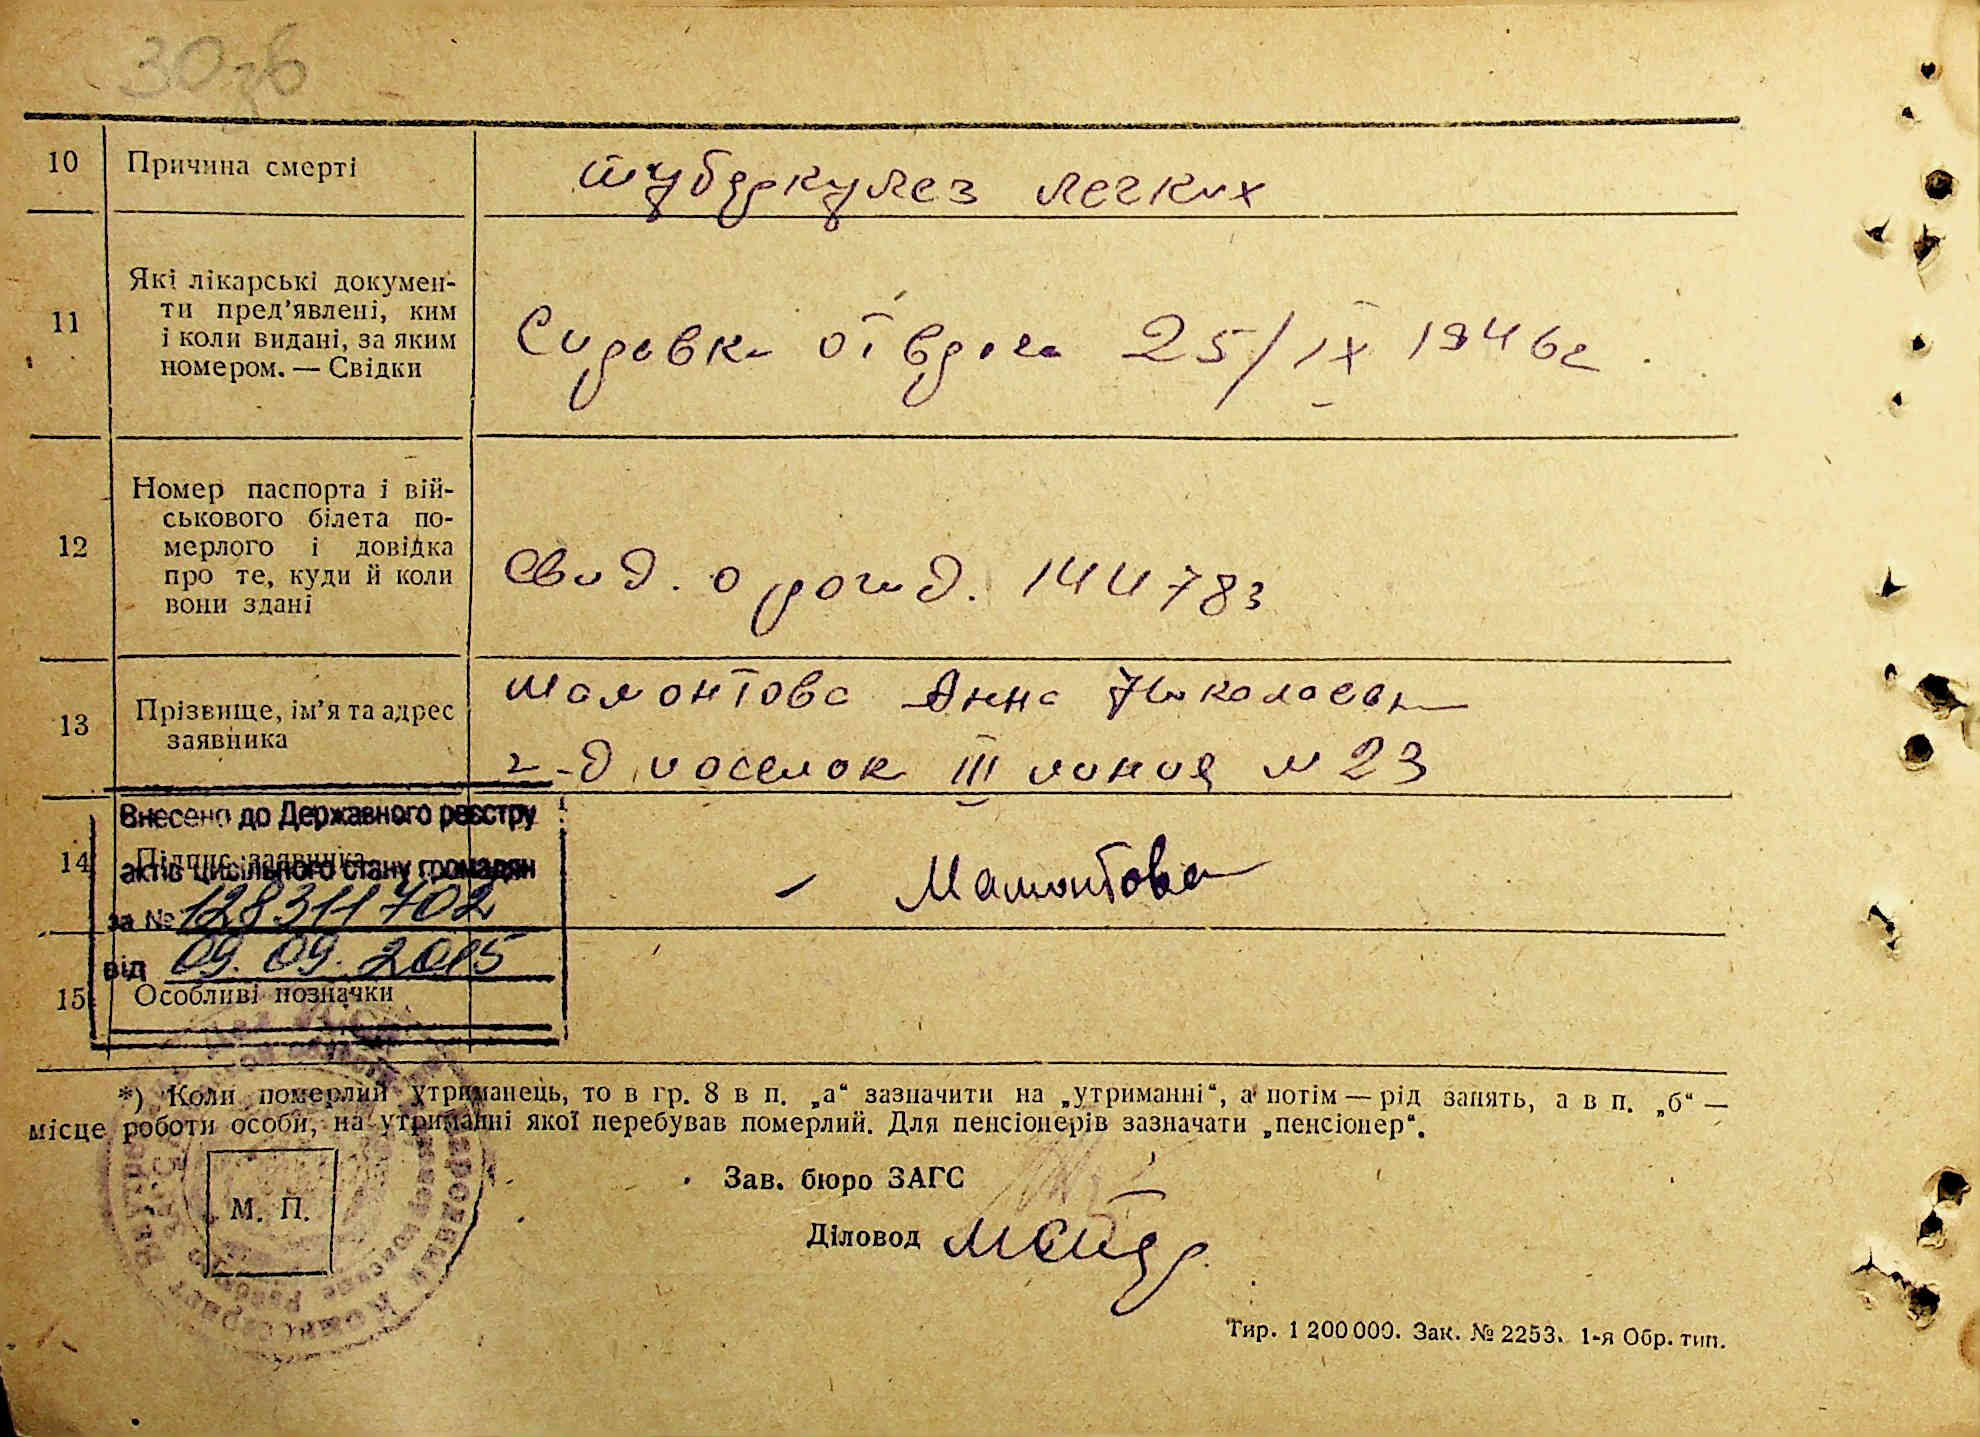 10 Причина смерті туберкулез легких
11 Які лікарські докумен-
ти пред’явлені, ким
і коли видані, за яким
номером. — Свідки
Справка от врача 25/IX 1946г.
12 Номер паспорта і вій-
ськового білета по-
мерлого і довідка
про те, куди й коли
вони здані
Свид. о рожд. 144783
13 Прізвище, ім’я та адрес
заявника
Мамонтова Анна Николаевн
2-й поселок III линия N 23
Внесено до Державного реєстру
14 Підпис заявника Мамонтова
актів цивільного стану громадян
за № 128311702
від 09.09.2015
15 Особливі позначки
*) Коли померлий утриманець, то в гр. 8 в п. „а“ зазначити на „утриманні“, а потім — рід занять, а в п. „б“ —
місце роботи особи, на утриманні якої перебував померлий. Для пенсіонерів зазначати „пенсіонер“.
М. П.
Зав. бюро ЗАГС
Діловод
Тир. 1 200 000. Зак. № 2253. 1-я Обр. тип.